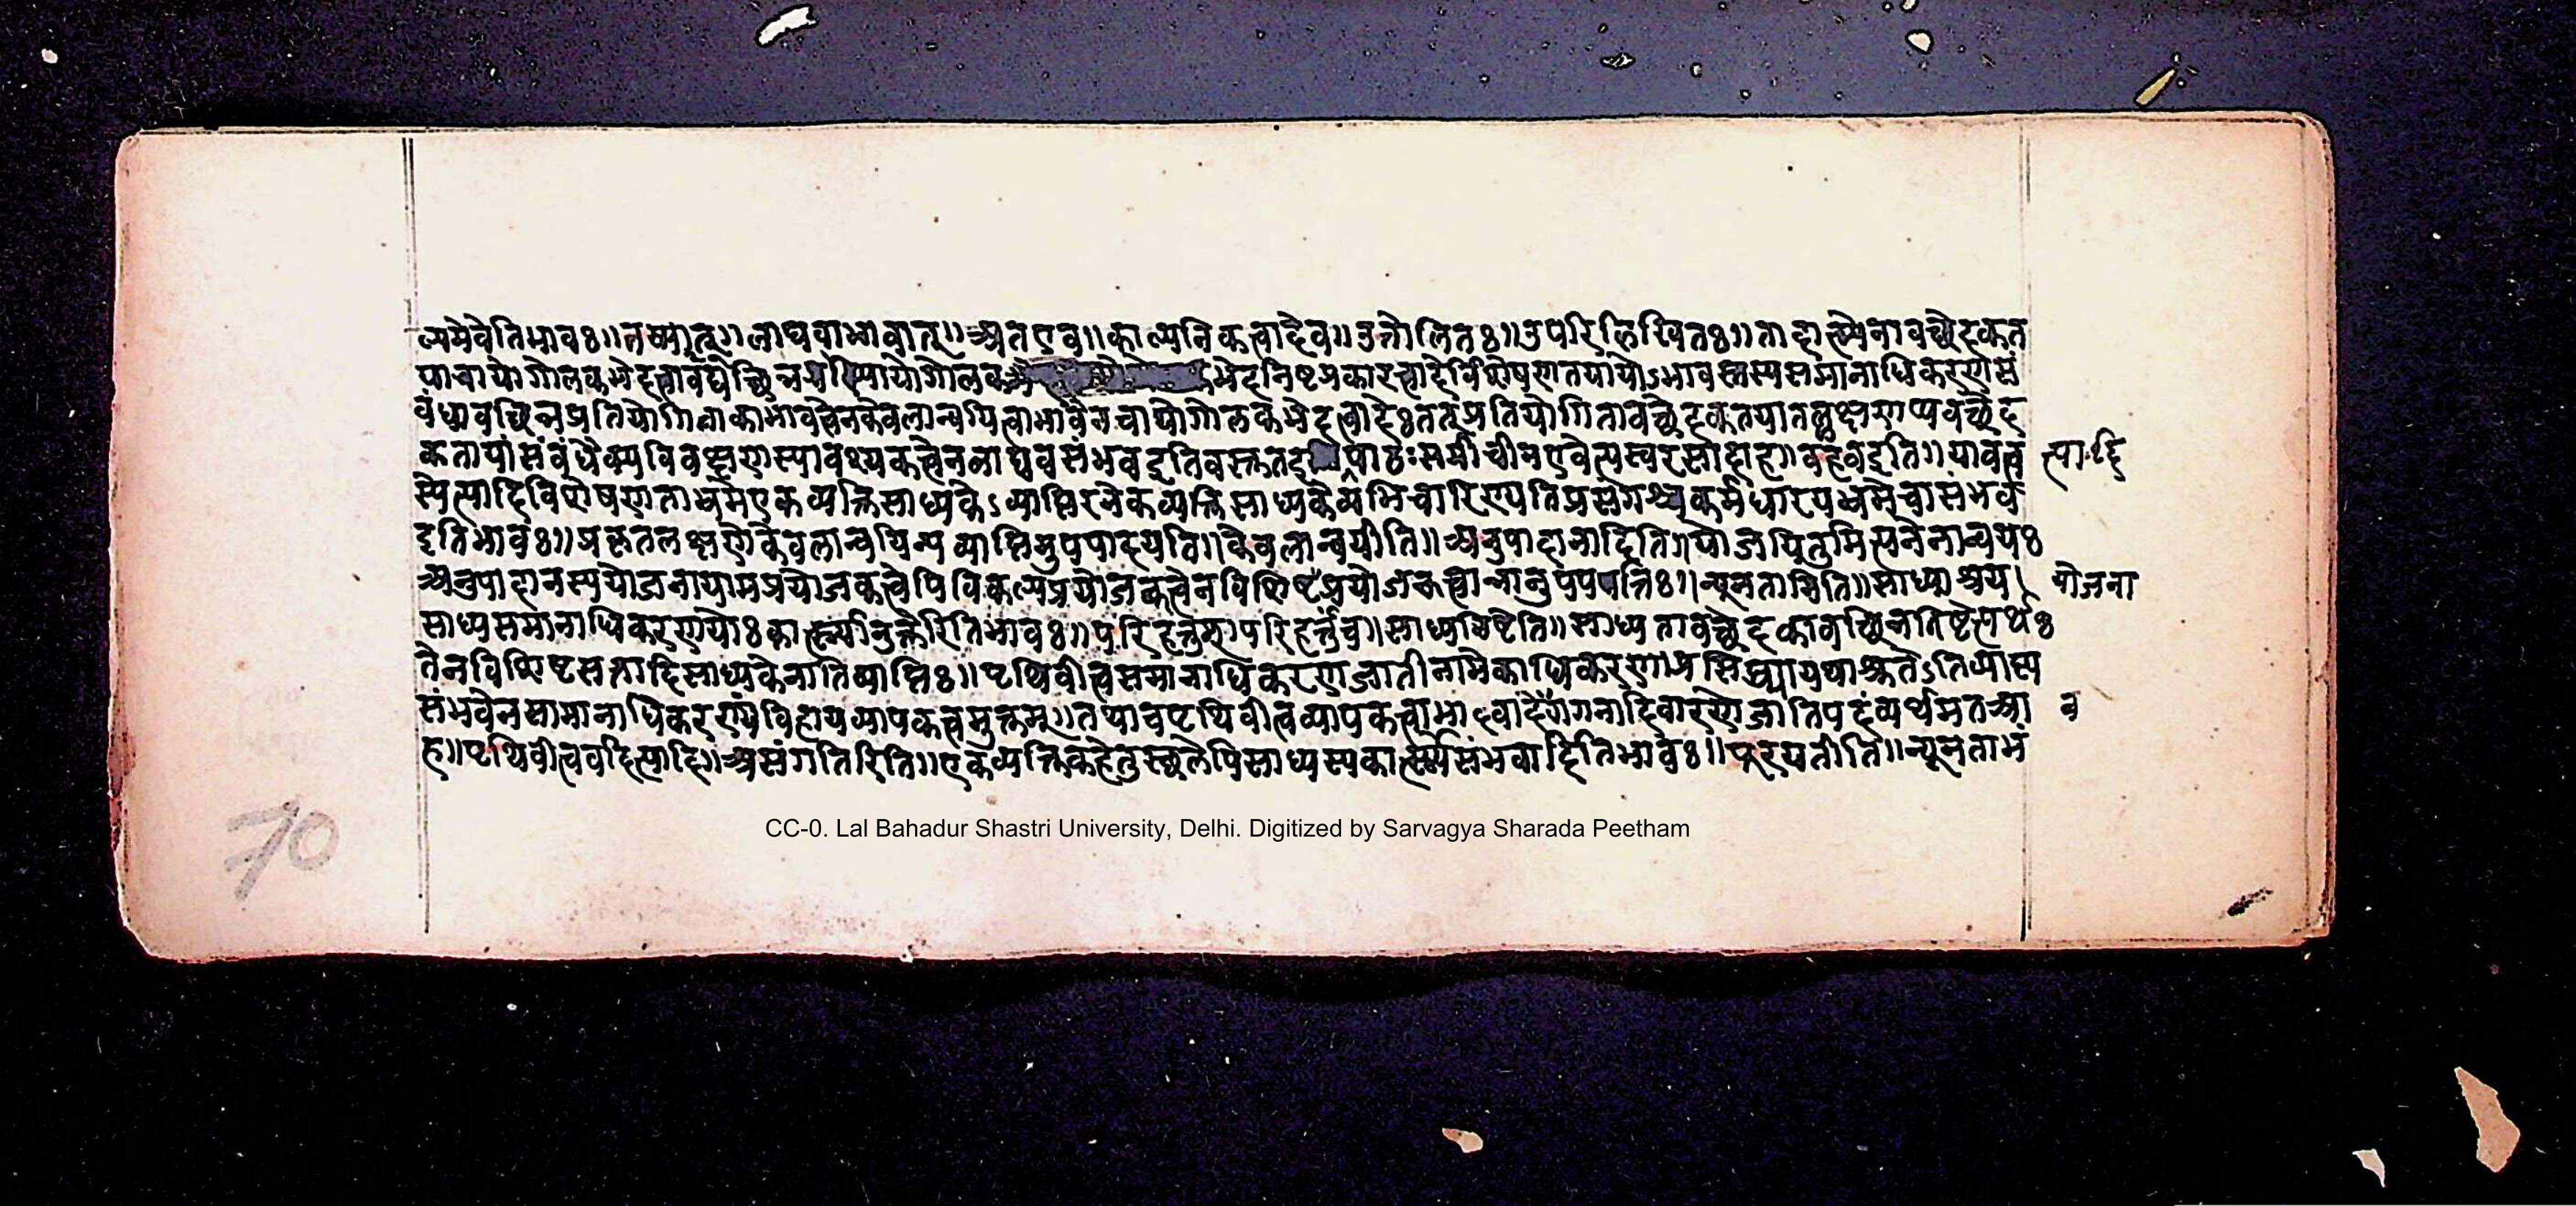 ल्पमेवेतिभावः॥नस्यात्॥लाघवाभावात्॥अतएव॥काल्पनिकत्वादेव॥उत्तोलितः॥उपरिलिखितः॥तादात्म्येनावच्छेदकत
याचायोगोलकभेदत्वावच्छिन्न योगोलक भेदनिष्टप्रकारत्वादेर्विशेषणतयायोऽभावस्तस्यसमानाधिकरणसं
बंधावच्छिन्नप्रतियोगिताकाभावत्वेनकेवलान्वयित्वाभावेनचायोगोलकभेदत्वादेःतत्प्रतियोगितावच्छेदकतयातल्लक्षणाप्यवच्छेद
कतायांसंबंधैक्यविवक्षणस्यावश्यकत्वेनलाघवसंभवइतिवस्तुतइ पाठःसमीचीनएवेत्यस्वरसादाह॥वहवइति॥यावत्त्वं
त्पादि
स्येत्यादिविशेषणताभ्रमेएकव्यक्तिसाध्यकेऽव्याप्तिरनेकव्यक्तिसाध्यकेव्यभिचारिण्यतिप्रसंगश्चकर्मधारयभ्रमेचासंभव
इतिभावः॥प्रकृतलक्षणेकेवलान्वयिन्यव्याप्तिमुपपादयति॥केवलान्वयीति॥अनुपादानादिति॥योजयितुमित्यनेनान्वयः
अनुपादानस्ययोजनायामप्रयोजकत्वेपिविकल्पप्रयोजकत्वेनविशिष्टप्रयोजकत्वान्नानुपपपत्तिः॥न्यूनतामिति॥साध्याश्रय।
योजना
साध्यसमानाधिकरणयोःकार्त्स्न्यानुक्तेरितिभावः॥परिहर्त्तुमपरिहर्त्तुंच॥साध्यमिष्टेति॥साध्यतावच्छेदकावच्छिन्नातिष्टेत्यर्थः
तेनविशिष्टसत्तादिसाध्यकेनातिव्याप्तिः॥पृथिवीत्वसमानाधिकरणजातीनामेकाधिकरणाप्रसिद्ध्यायथाश्रुतेऽतिव्याप्त्य
संभवेनसामानाधिकरण्यंविहायव्यापकत्वमुक्तम्॥तथाचपृथिवीत्वव्यापकत्वाभावादेर्गगनादिवारणेजातिपदंव्यर्थमतआ
व
ह॥पृथिवीत्ववदित्यादि॥असंगतिरिति॥एकव्यक्तिकहेतुस्थलेपिसाध्यस्यकार्त्स्न्यासंभवादितिभावः॥पूरयतीति॥न्यूनताभं
70
CC-0. Lal Bahadur Shastri University, Delhi. Digitized by Sarvagya Sharada Peetham